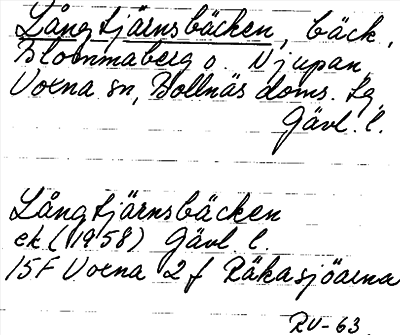 Långtjärnsbäcken, bäck,
Blommaberg o. Njupan,
Voxna sn, Bollnäs doms. tg,
Gävl. l.
Långtjärnsbäcken
ek (1958) Gävl. l.
15F Voxna 2 f Råkasjöarna
RV-63